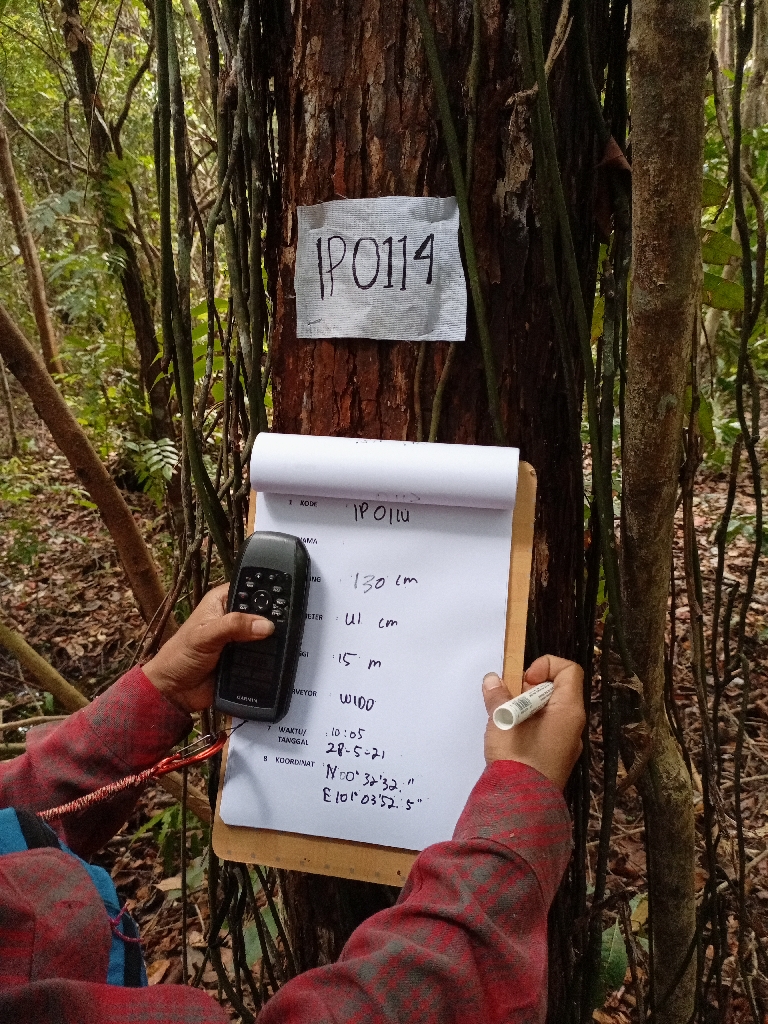 IP0114
1 KODE : IP0114
AMA
NG : 130 cm
METER : 41 cm
GGI : 15 m
RVEYOR : WIDO
7 WAKTU/ : 10:05
TANGGAL 28-5-21
8 KOORDINAT : N 00° 32'32."
E 101° 03'52.5"
GARMIN